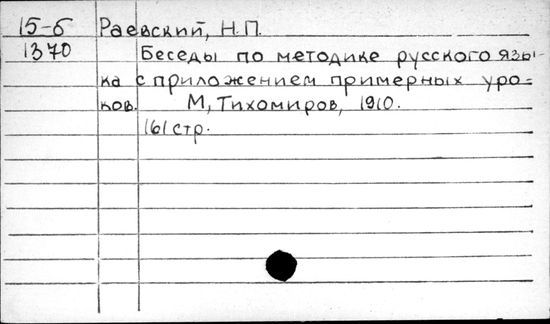 15-б Раевский, Н.П.
1370 Беседы по методике русского язы-
ка с приложением примерных уро-
ков. М, Тихомиров, 1910.
161 стр.